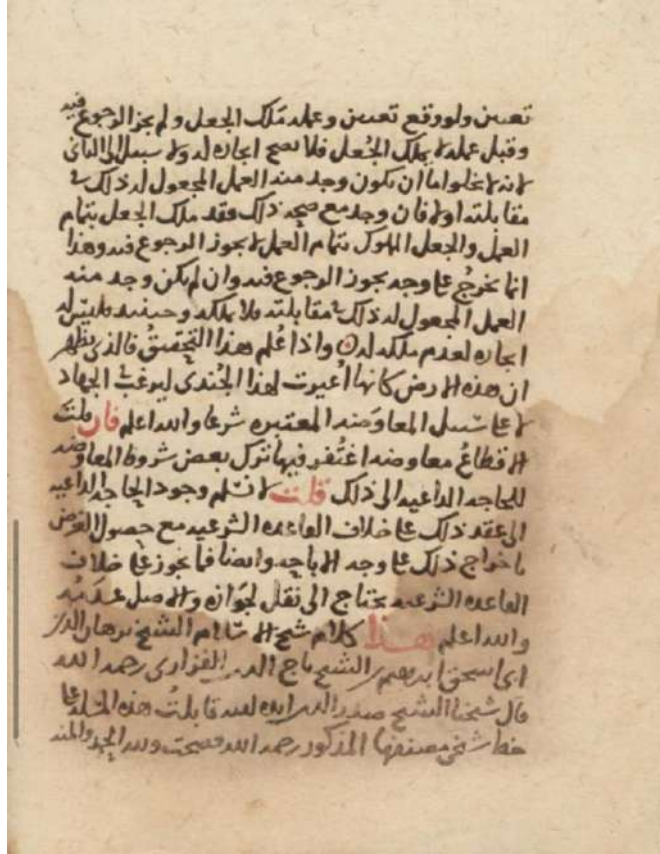 تعين ولو وقع تعين وعمله ملك الجعل ولم يجز الرجوع فيه
وقبل عمله لا يملك الجُعل فلا تصح اجارته له ولا سبيل الى الثاني
لانه لا يخلوا اما ان يكون وجد منه العمل المجعول له ذلك في
مقابلته اولا فان وجد مع صحة ذلك فقد ملك الجعل بتمام
العمل والجعل المملوك بتمام العمل لا يجوز الرجوع فيه وهذا
انما يخرج على وجه يجوز الرجوع فيه وان لم يكن وجد منه
العمل المجعول له ذلك في مقابلته فلا يملكه وحينئذ فليس له
اجارة لعدم ملكه له واذا عُلم هذا التحقيقُ فالذي يظهر
ان هذه الارض كانها اُعيرت لهذا الجُندي ليرغب الجهاد
لا على سبيل المعاوضة المعتبرة شرعا والله اعلم فان قلتَ
الاقطاعُ معاوضة اغتُفر فيها ترك بعض شروط المعاوضة
للحاجة الداعية الى ذلك قلت لا نسلم وجود الحاجة الداعية
الى عقد ذلك على خلاف القاعدة الشرعية مع حصول الغرض
باخراج ذلك على وجه الاباحة وايضا فما يجوز على خلاف
القاعدة الشرعية يحتاج الى نقل لجوازه والاصل عدمه
والله اعلم هذا كلام شيخ الاسلام الشيخ برهان الدين
ابي اسحق ابرهيم بن الشيخ تاج الدين الفزاري رحمه الله
قال شيخنا الشيخ صدر الدين ايده الله قابلتُ هذه المسئلة على
خط شيخي مصنفها المذكور رحمه الله فصحت ولله الحمد والمنة